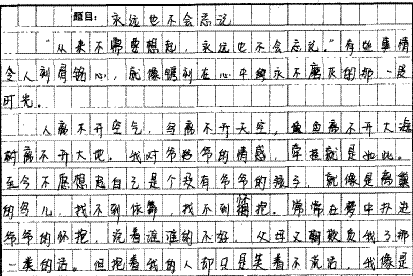 题目：永远也不会忘记
“从来不需要想起，永远也不会忘记。”有些事情
令人刻骨铭心，就像镌刻在心中的永不磨灭的那一段
时光。
人离不开空气，鸟离不开天空，鱼离不开大海
树离不开大地。我对爷爷的情感，牵挂就是如此。
至今不愿想起自己是个没有爷爷的孩子，就像是离巢
的鸟儿，找不到依靠，找不到怀抱。常常在梦中扑进
爷爷的怀抱，说着谁谁的不好，父母又聊教员我了那
一类的话。但抱着我的人却只是笑着不说话，我像是